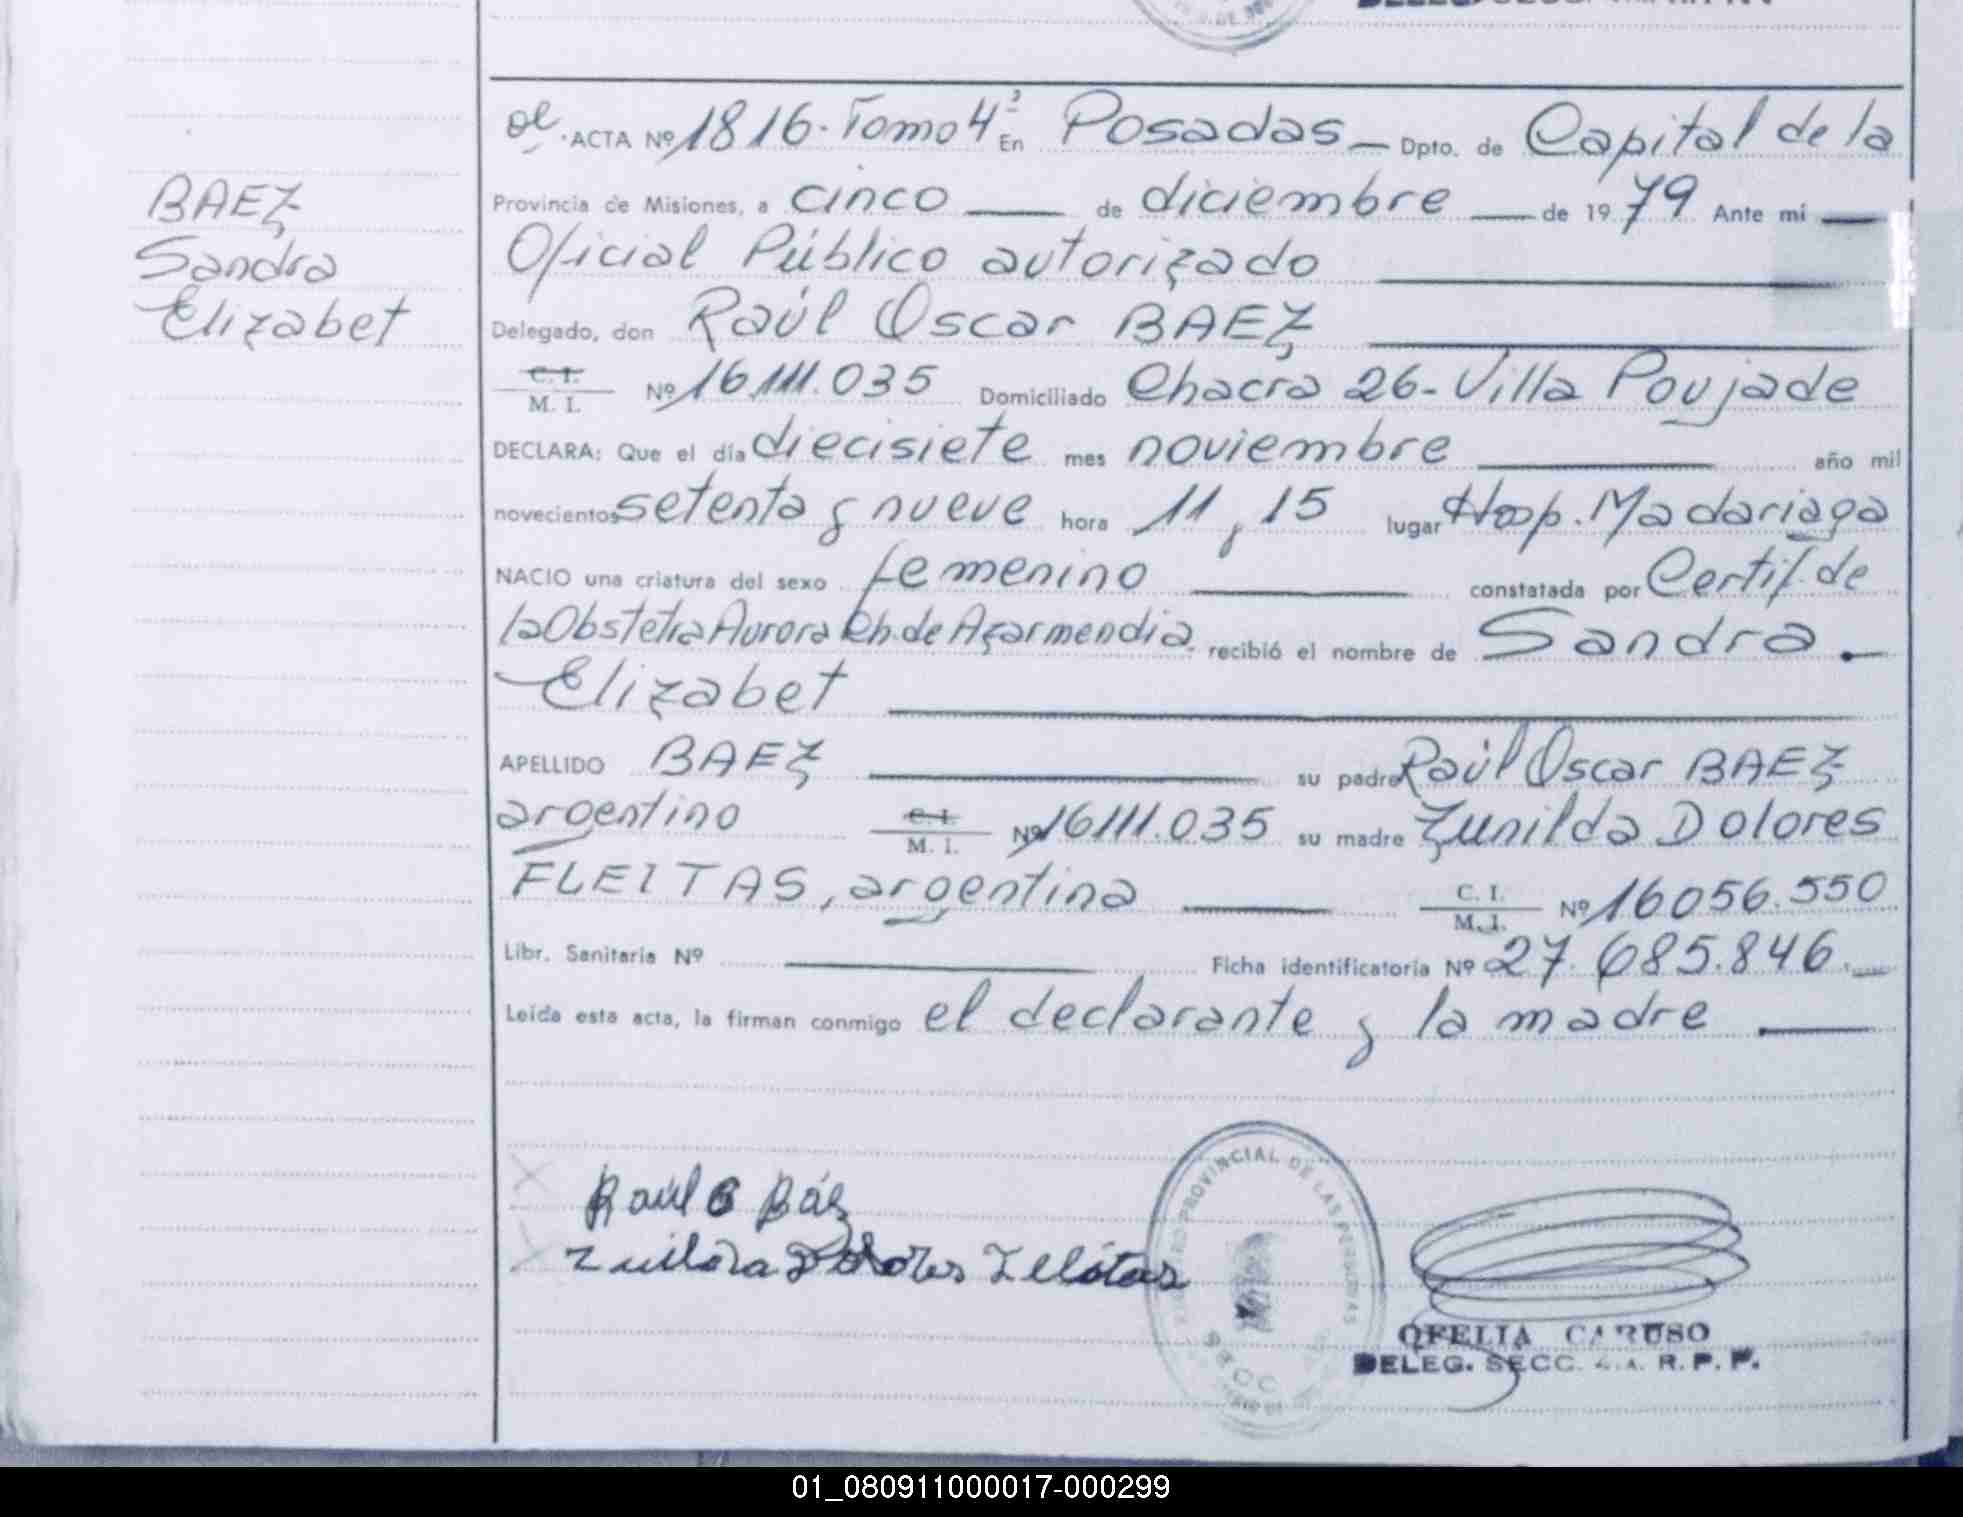 BAEZ
Sandra
Elizabet
ACTA Nº 1816. Tomo 4º En Posadas — Dpto. de Capital de la
Provincia de Misiones, a cinco — de diciembre — de 1979 Ante mi —
Oficial Público autorizado
Delegado, don Raúl Oscar BAEZ
C. I.
M. I. Nº 16.111.035 Domiciliado Chacra 26-Villa Poujade
DECLARA: Que el día diecisiete mes noviembre — año mil
novecientos setenta y nueve hora 11,15 lugar Hosp. Madariaga
NACIO una criatura del sexo femenino — constatada por Certif. de
la Obstetra Aurora Rh. de Azarmendia. recibió el nombre de Sandra.—
Elizabet
APELLIDO BAEZ — su padre Raúl Oscar BAEZ
argentino C. I. M. I. Nº 16111.035 su madre Zunilda Dolores
FLEITAS, argentina — C. I. M. I. Nº 16056.550
Libr. Sanitaria Nº — Ficha identificatoria Nº 27.685.846.—
Leída esta acta, la firman conmigo el declarante y la madre —
Raúl O Báz
REGISTRO PROVINCIAL DE LAS PERSONAS
SECC.
OFELIA CARUSO
DELEG. SECC. 4.A. R. P. P.
01_080911000017-000299